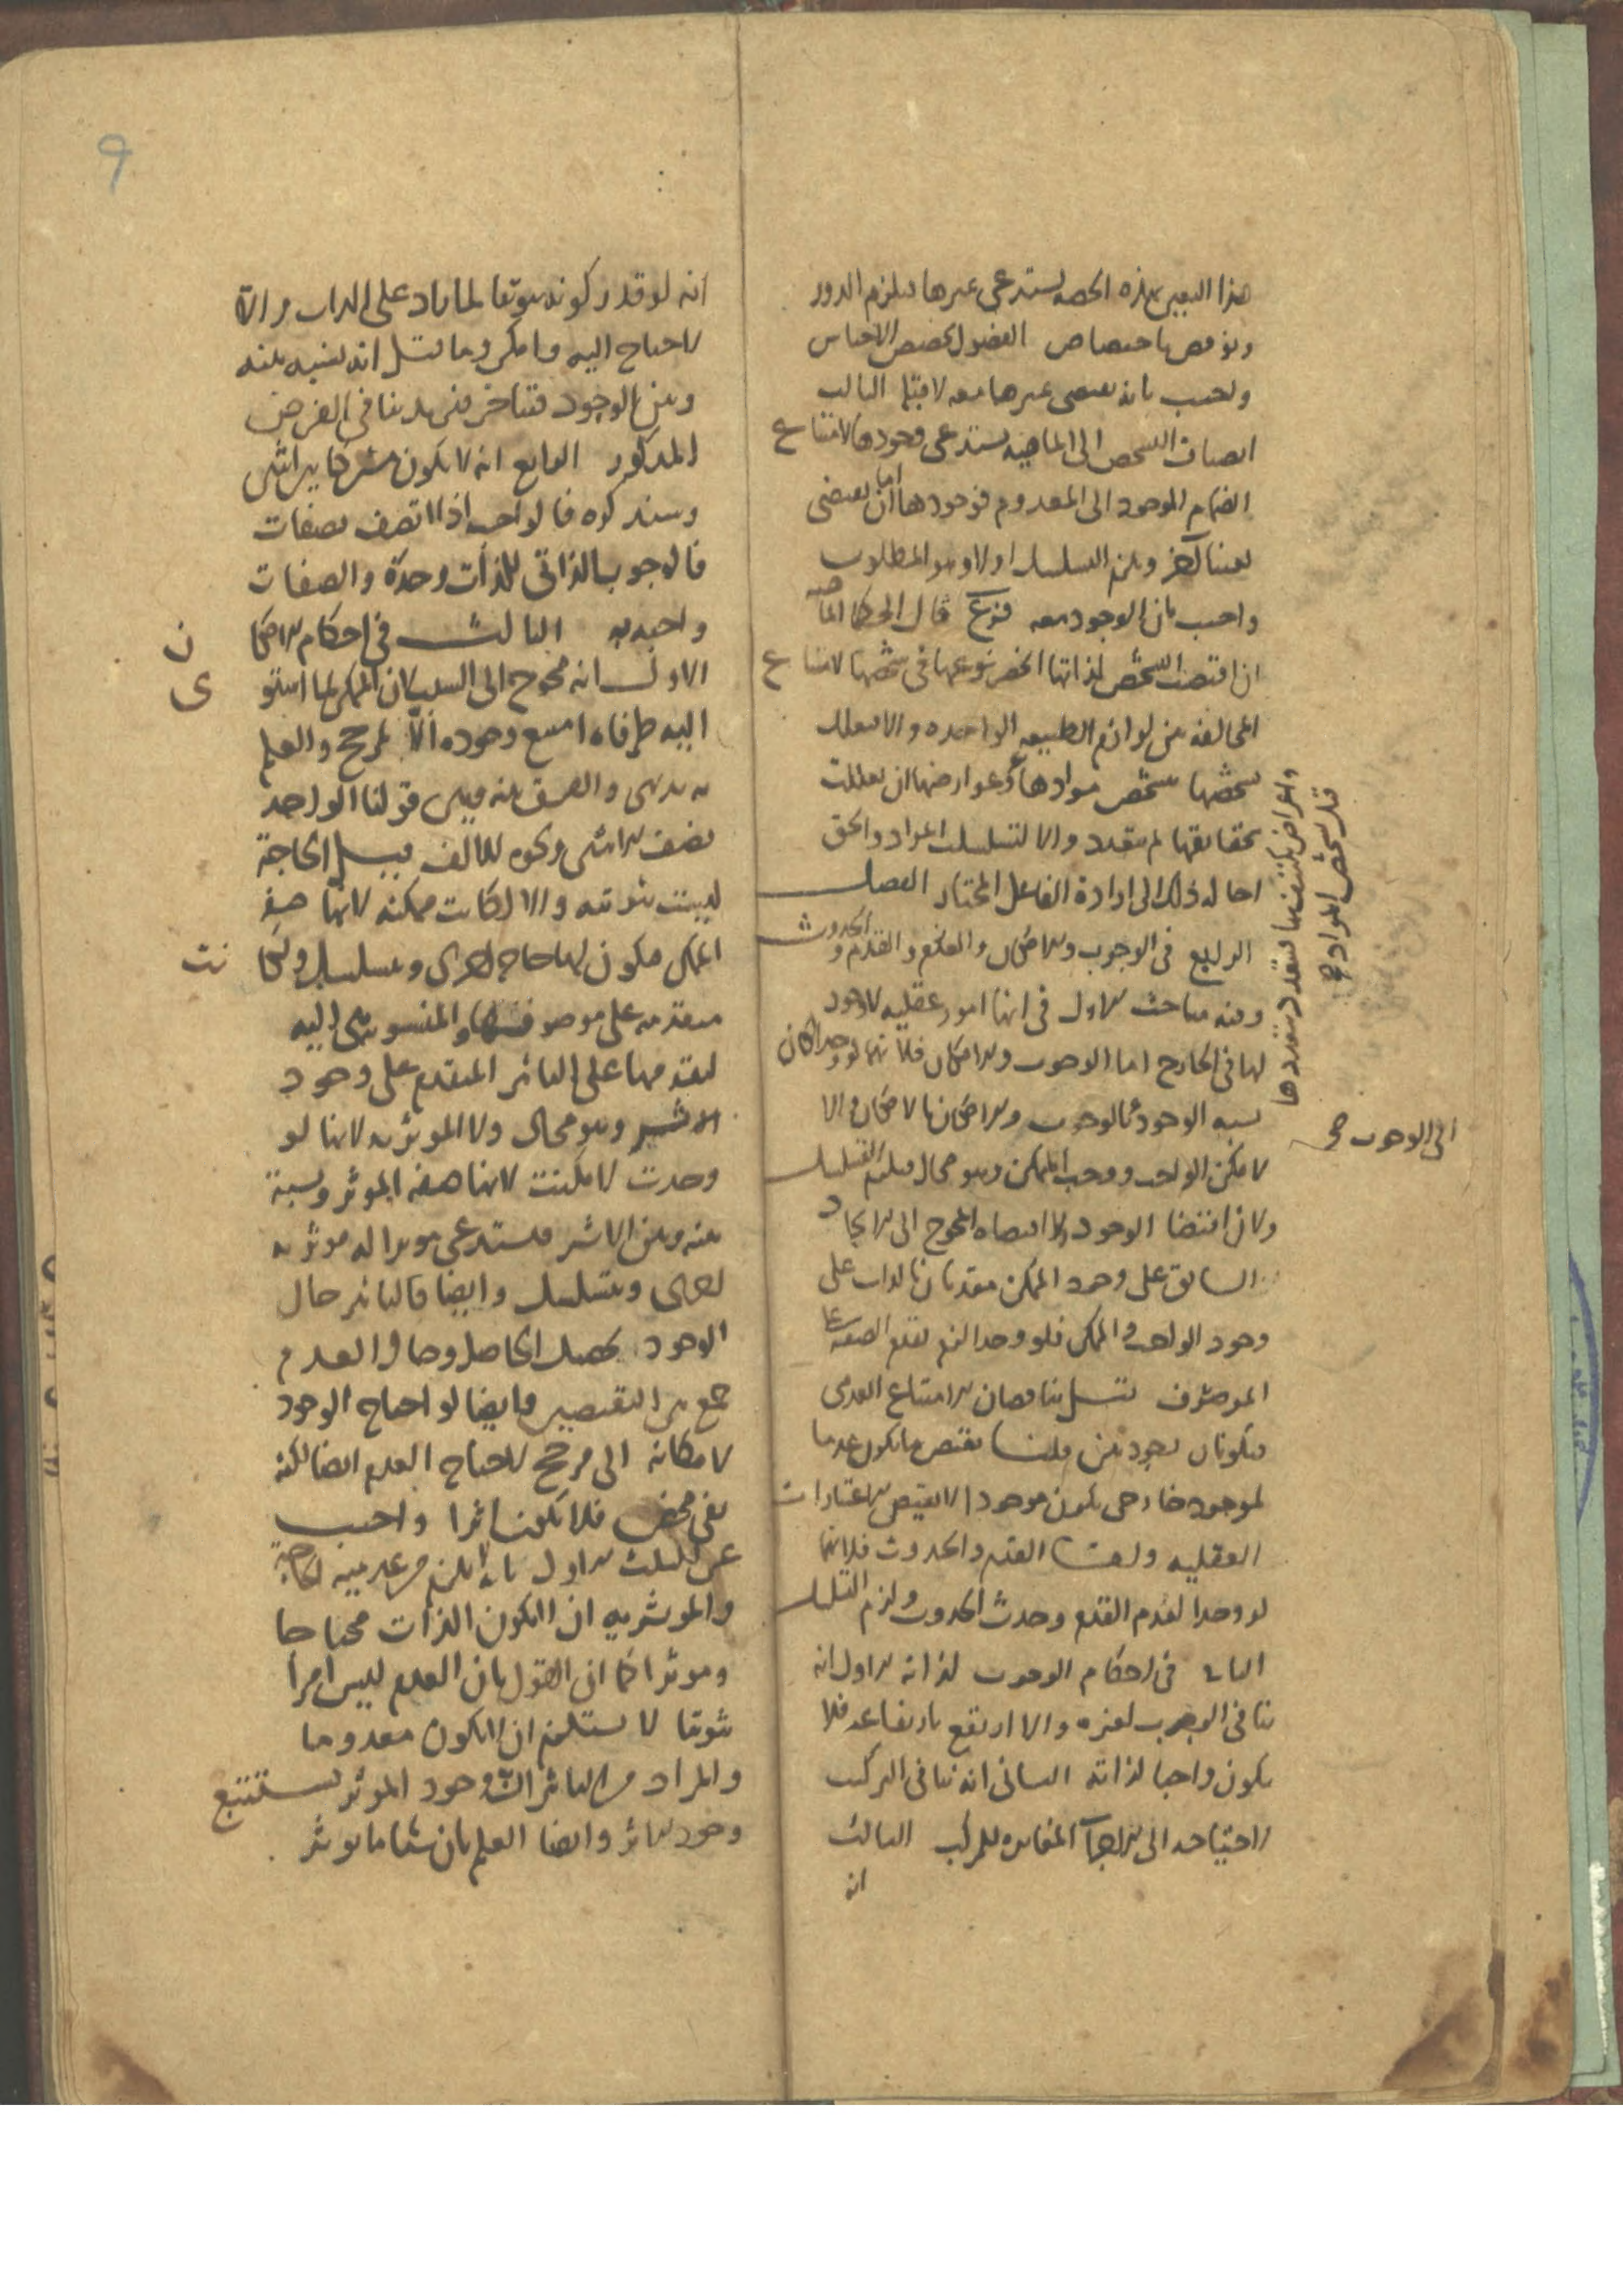 هذا التعين بهذه الحصة يستدعى تميزها فيلزم الدور
ونوقض باختصاص الفصول بحصص الاجناس
واجيب بانه يقتضى تميزها معه لا قبله الثالث
انضياف التشخص الى الماهية يستدعى وجودها لامتناع
انضمام الموجود الى المعدوم فوجودها اما ان يقتضى
تعينا آخر ويلزم التسلسل اولا وهو المطلوب
واجيب بان الوجود معه فرع قال الحكما الماهية
ان اقتضت التشخص لذاتها انحصر نوعها فى شخصها لامتناع
المخالفة بين لوازم الطبيعة الواحدة والا فيعلل
تشخصها بتشخص موادها وعوارضها ان تعللت
بحقايقها لم تتعدد والا لتسلسلت المواد والحق
احالة ذلك الى ارادة الفاعل المختار الفصل
الرابع فى الوجوب والامكان والقدم والحدوث
وفيه مباحث الاول فى انها امور عقلية لا وجود
لها فى الخارج اما الوجوب والامكان فلانهما لو وجدا لكان
نسبة الوجود الى الوجوب بالوجوب والامكان بالامكان والا
لامكن الواجب ووجب الممكن وهو محال فيلزم التسلسل
ولان اقتضا الوجود ولا اقتضاه المحوج الى الايجاد
السابق على وجود الممكن مقدمان بالذات على
وجود الواجب والممكن فلو وجدا لزم تقدم الصفة على
الموصوف قيل يناقضان الامتناع العدمى
فيكونان وجوديين قلنا نقيض ما يكون عدما
لموجود خارجى يكون موجودا لا نقيض الاعتبارات
العقلية واما القدم والحدوث فلانهما
لو وجدا لقدم القدم وحدث الحدوث ولزم التسلسل
الثانى فى احكام الوجوب لذاته الاول انه
ينافى الوجوب لغيره والا ارتفع بارتفاعه فلا
يكون واجبا لذاته الثانى انه ينافى التركيب
لاحتياجه الى الاجزاء المغايرة للمركب الثالث
انه
قبل تشخص المواد صح
الى الوجوب صح
انه لو قدر كونه ثبوتيا لما زاد على الذات والا
لاحتاج اليه وامكن وما قيل انه نسبة بينه
وبين الوجود فتتاخر عنهما ينافى الفرض
المذكور الرابع انه لا يكون مشتركا بين اثنين
وسنذكره فالواجب اذا اتصف بصفات
فالوجوب الذاتى للذات وحدة والصفات
واجبة به الثالث فى احكام الامكان
الاول انه محوج الى السبب لان الممكن لما استوى
اليه طرفاه امتنع وجوده الا لمرجح والعلم
به بديهى والفرق بينه وبين قولنا الواحد
نصف الاثنين ونحوه للالف قيل الحاجة
ليست ثبوتية والا لكانت ممكنة لانها صفة
الممكن فيكون لها حاجة اخرى ويتسلسل ولكانت
متقدمة على موصوفها والمنسوب هى اليه
لتقدمها على التاثير المتقدم على وجود
الاثر وهو محال ولا المؤثرية لانها لو
وجدت لامكنت لانها صفة المؤثر ونسبة
بينه وبين الاثر فتستدعى مؤثرا له مؤثرية
اخرى ويتسلسل وايضا فالتاثير حال
الوجود تحصيل الحاصل وحال العدم
جمع بين النقيضين وايضا لو احتاج الوجود
لامكانه الى مرجح لاحتاج العدم ايضا لكنه
نفى محض فلا يكون اثرا واجيب
عن الثلث الاول بانه لا يلزم من عدمية الحاجة
والمؤثرية ان لا يكون الذات محتاجا
ومؤثرا كما ان القول بان العدم ليس امرا
ثبوتيا لا يستلزم ان لا يكون معدوما
والمراد من التاثير ان وجود المؤثر يستتبع
وجود الاثر وايضا العلم بان شيئا ما يؤثر